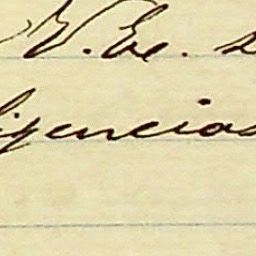 V. Ex.
ligencias